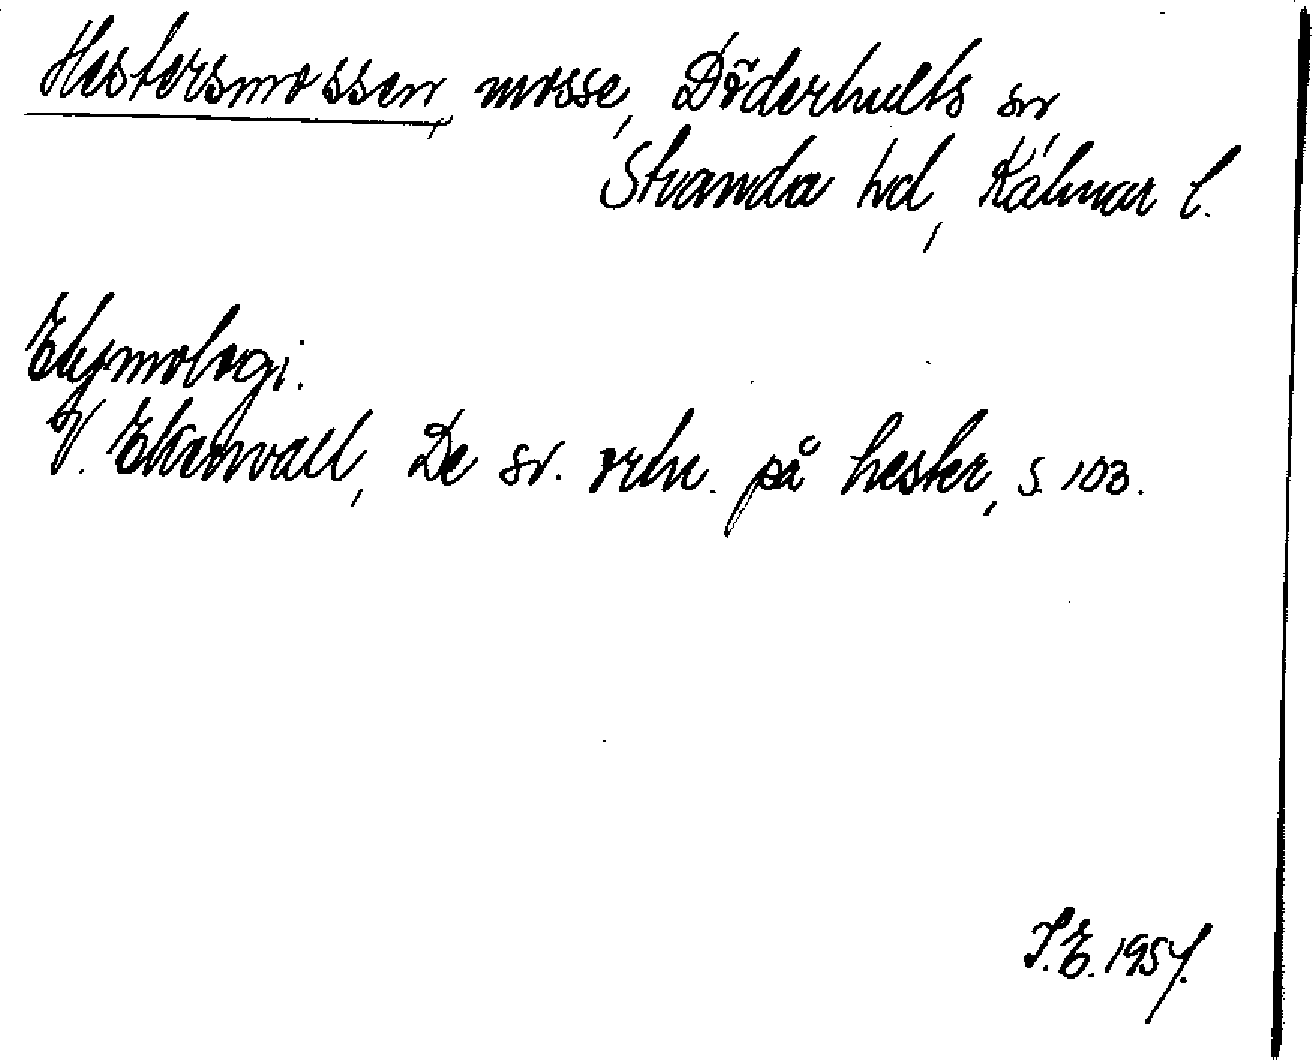 Hestersmossen, mosse, Döderhults sn
Stranda hd, Kalmar l.
Etymologi.
V. Ekenvall, De sv. ortn. på hester, s. 103.
I.E. 1957.